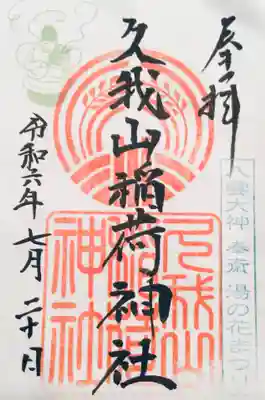 奉拝
八雲大神 奉斎 湯の花まつり
久我山稲荷神社
久我山稲荷神社
令和六年 七月 二十日